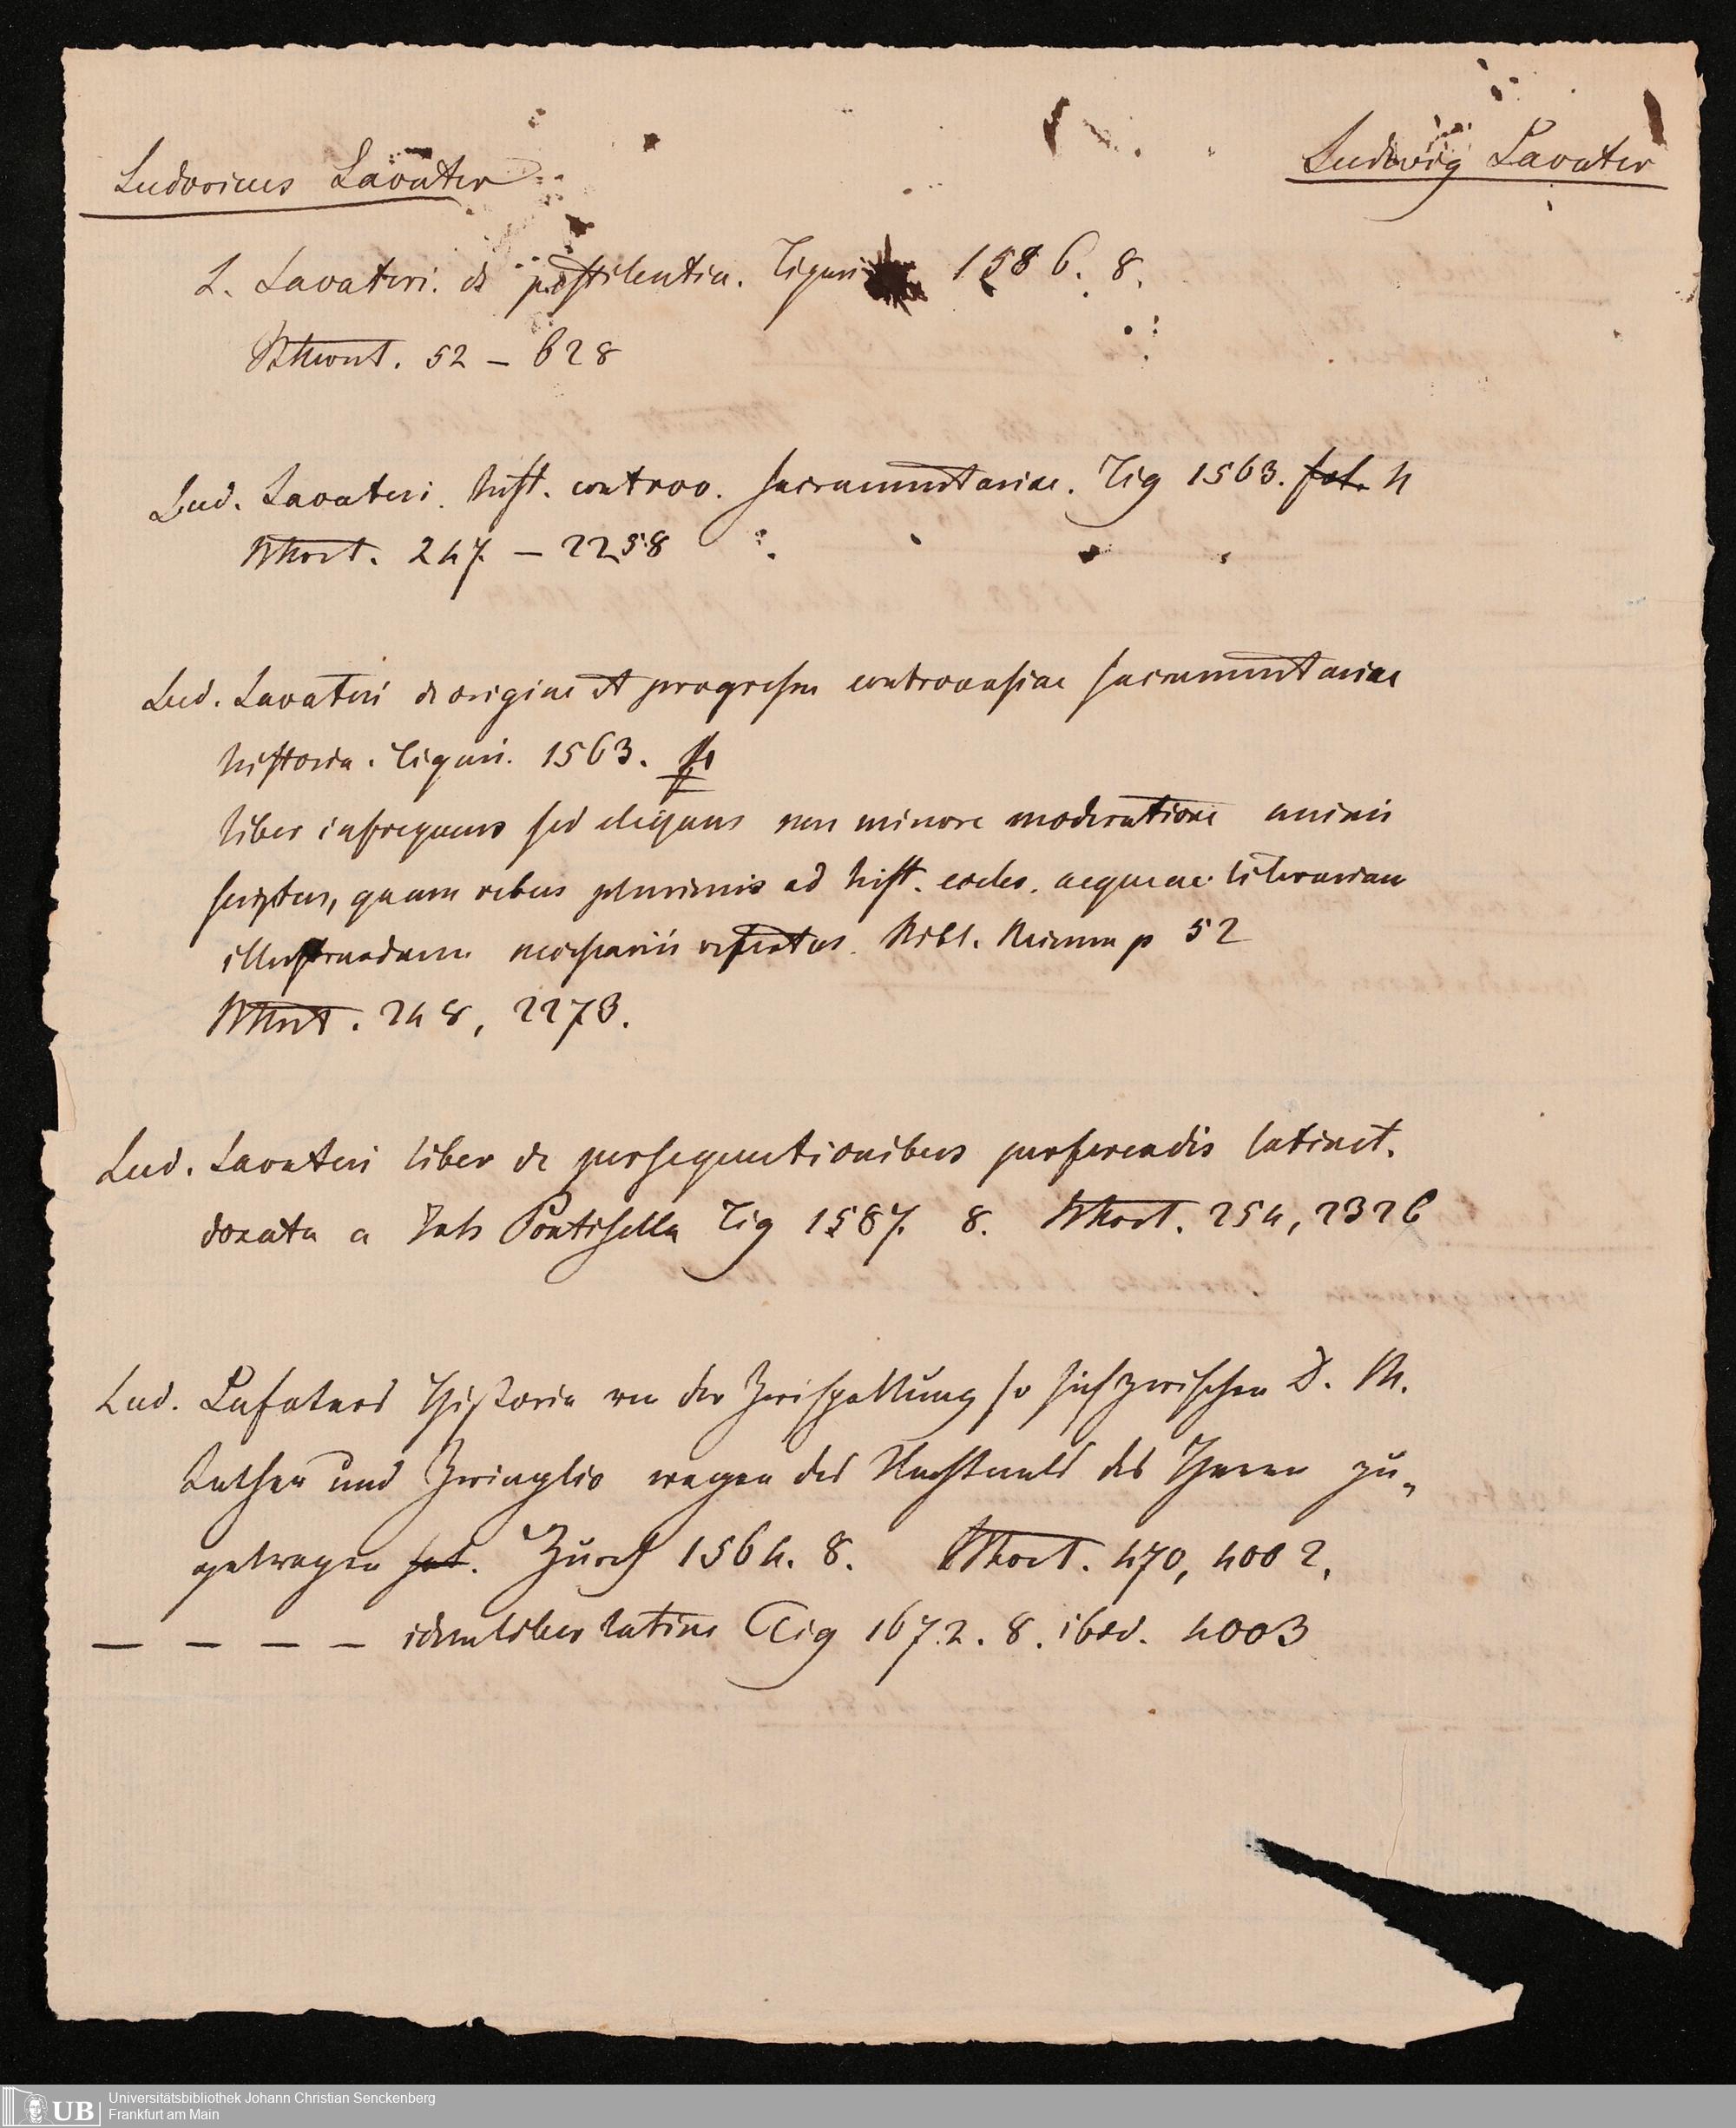 Ludovicus Lavater
Ludwig Lavater
L. Lavateri. de pestilentia. Tiguri 1586. 8.
52 – 628
Lud. Lavateri. hist. controv. sacramentariae. Tig 1563. fol. 4
247 – 2258
Lud. Lavateri de origine et progressu controversiae sacramentariae
historia. Tiguri. 1563.
liber infrequens sed elegans non minore moderatione animi
scriptus, quam rebus plurimis ad hist. eccles. aeque ac literariam
illustrandam necessariis refertus. Bibl. p 52
248, 2273.
Lud. Lavateri liber de persequutionibus perferendis latinit.
donata a Joh Pontisella Tig 1587. 8. 254, 2326
Lud. Lafaters Historia von der Zweispaltung so sich zwischen D. M.
Luther und Zwinglio wegen des Nachtmals des Herrn zu-
getragen hat. Zürch 1564. 8. 470, 4002.
— — — — idem liber latine Tig 1672. 8. ibid. 4003
UB
Universitätsbibliothek Johann Christian Senckenberg
Frankfurt am Main